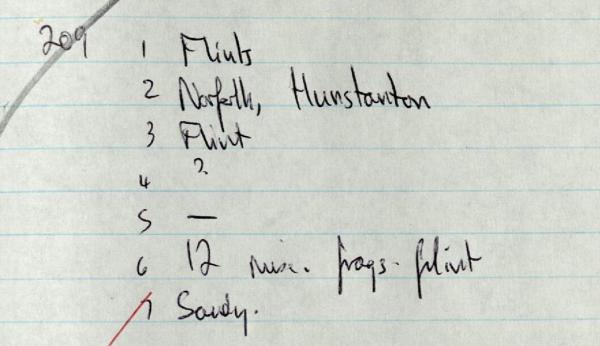 209
1 Flints
2 Norfolk, Hunstanton
3 Flint
4 ?
5 —
6 12 misc. frags. flint
7 Sandy.